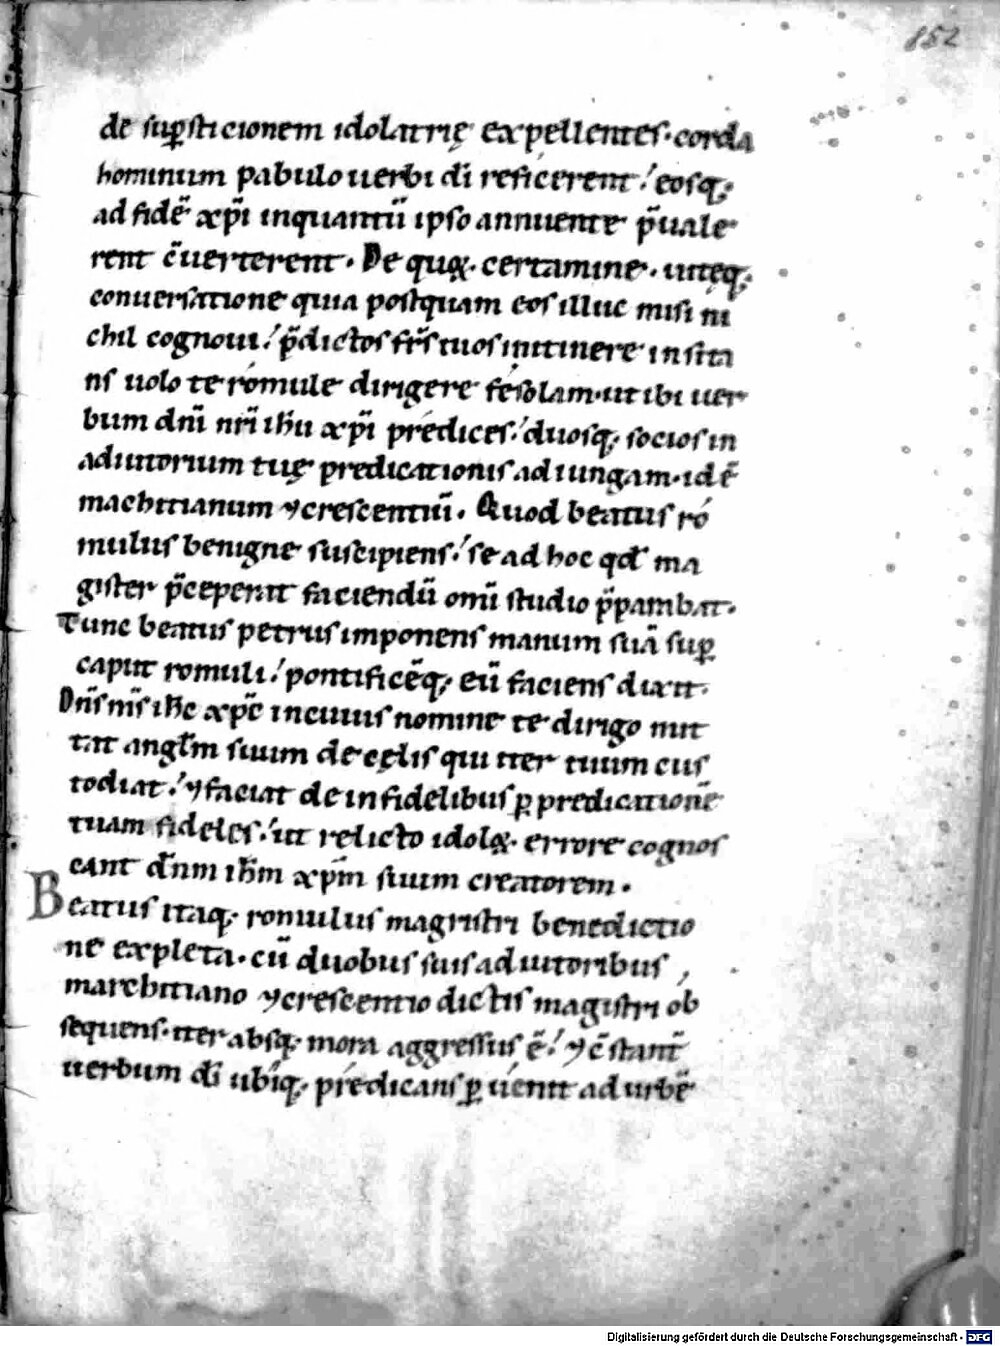 852
de suꝑsticionem idolatrię expellentes. corda
hominum pabulo uerbi dī reficerent! eosq;
ad fidē xp̄i inquantū ipso annuente p̄uale
rent c̄uerterent. De quoꝝ. certamine. uitęq;
conuersatione quia postquam eos illuc misi ni
chil cognoui! p̄dictos fr̄s tuos initinere insita
ns uolo te romule dirigere fesolam. ut ibi uer
bum dn̄i nr̄i ih̄u xp̄i predices! duosq; socios in
adiutorium tuę predicationis adiungam. idē
marchitianum ⁊crescentiū. Quod beatus ro
mulus benigne suscipiens! se ad hoc qd̄ ma
gister p̄ceperat faciendū omī studio p̄parabat.
Tunc beatus petrus imponens manum suā suꝑ
caput romuli! pontificēq; eū faciens dixit.
Dn̄s nr̄s ih̄c xp̄c incuius nomine te dirigo mit
tat angl̄m suum de cęlis qui iter tuum cus
todiat! ⁊faciat de infidelibus ꝑ predicationē
tuam fideles! ut relicto idoloꝝ. errore cognos
cant dn̄m ih̄m xp̄m suum creatorem.
Beatus itaq; romulus magistri benedictio
ne expleta. cū duobus suis adiutoribus,
marchitiano ⁊crescentio dictis magistri ob
sequens. iter absq; mora aggressus ē! ⁊c̄stant̄
uerbum dī ubiq; predicans ꝑuenit ad urbē
Digitalisierung gefördert durch die Deutsche Forschungsgemeinschaft - DFG